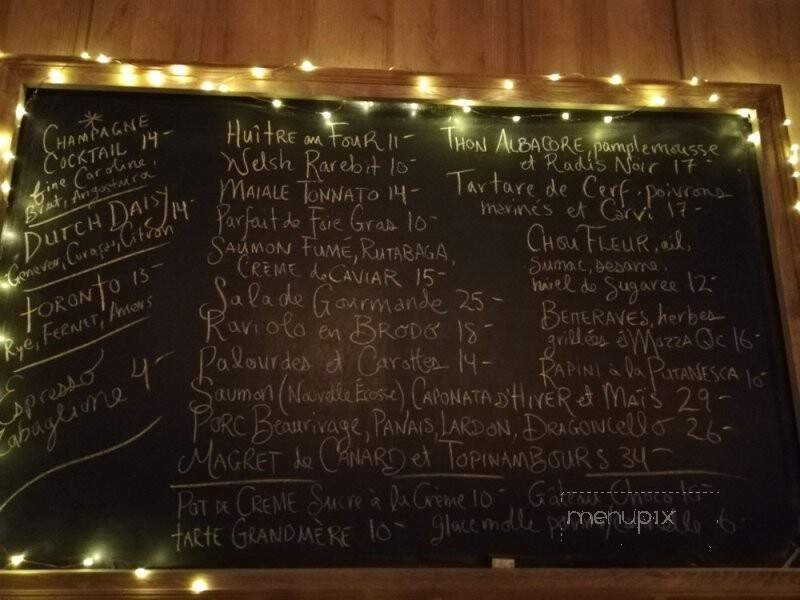 CHAMPAGNE
COCKTAIL 14-
fine Caroline,
Brut, Angostura
DUTCH DAISY 14-
Genever, Curaçao, Citron
TORONTO 15-
Rye, FERNET, Amers
Espresso
Zabaglione 4-
HUÎTRE au FOUR 11-
Welsh Rarebit 10-
MAIALE TONNATO 14-
Parfait de Foie Gras 10-
SAUMON FUMÉ, RUTABAGA,
CRÈME de CAVIAR 15-
Salade Gourmande 25-
Raviolo en BRODO 18-
Palourdes et Carottes 14-
Saumon (Nouvelle Écosse) CAPONATA D'HIVER et MAÏS 29-
PORC Beaurivage, PANAIS, LARDON, DRAGONCELLO 26-
MAGRET de CANARD et TOPINAMBOURS 34-
THON ALBACORE, pamplemousse
et RADIS NOIR 17-
Tartare de Cerf, poivrons
marinés et Carvi 17-
CHOU FLEUR, ail,
sumac, sesame,
miel de Sugaree 12-
BETTERAVES, herbes
grillées & Mozza Qc 16-
RAPINI à la PUTANESCA 10-
POT DE CRÈME Sucre à la Crème 10- Gâteau Choco
TARTE GRANDMÈRE 10- glace molle 6-
menupix